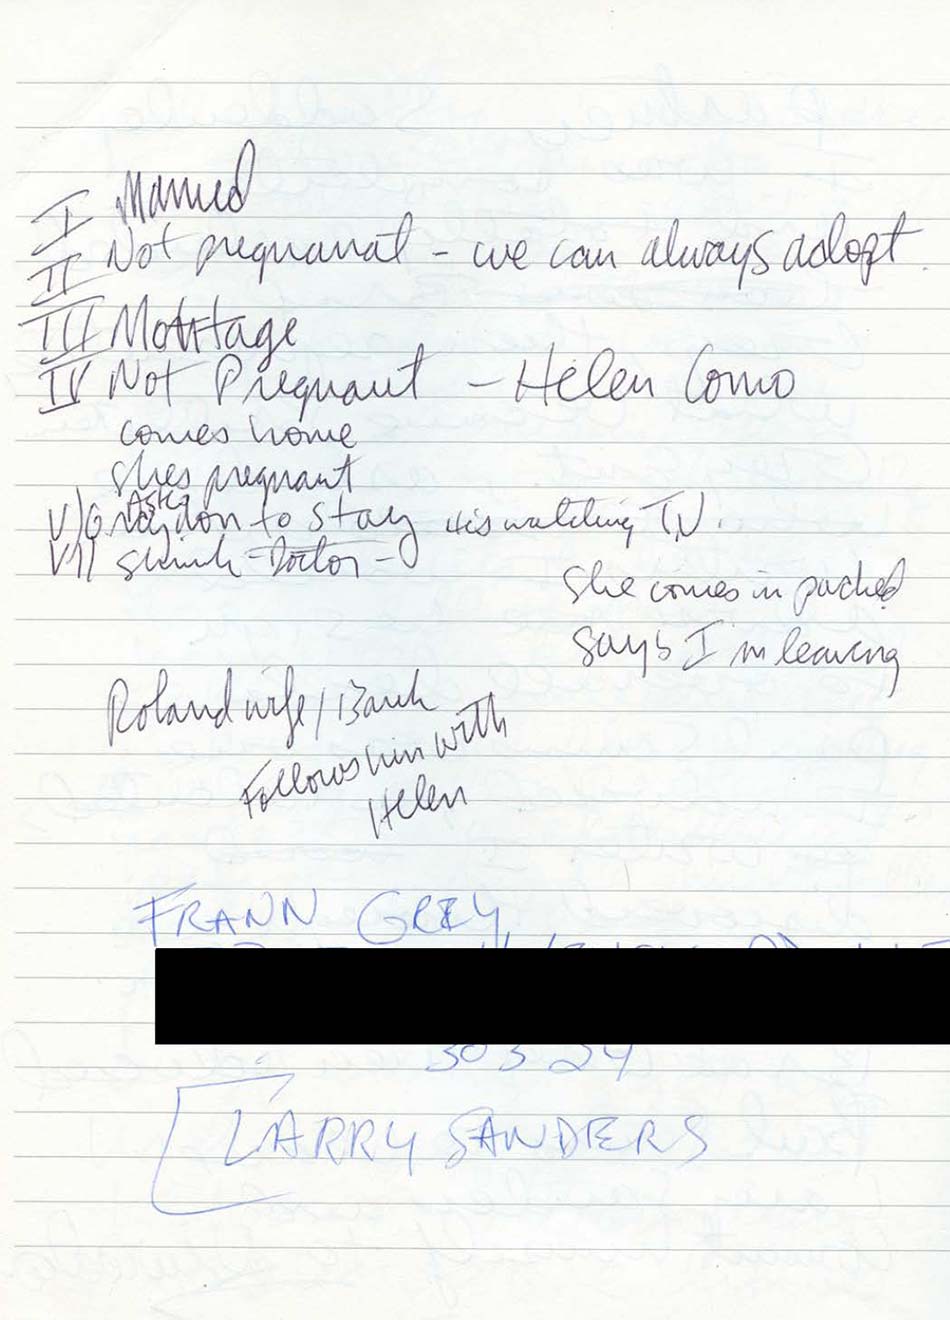 I Married
II Not pregnanat - we can always adopt.
III Mottage
IV Not Pregnant - Helen Como
comes home
shes pregnant
V) Asks
don to stay His watching TV.
VII Shrink - Doctor -
She comes in packed
says I'm leaving
Roland wife / Bank
Follows him with
Helen
FRANN GREY
30324
LARRY SANDERS